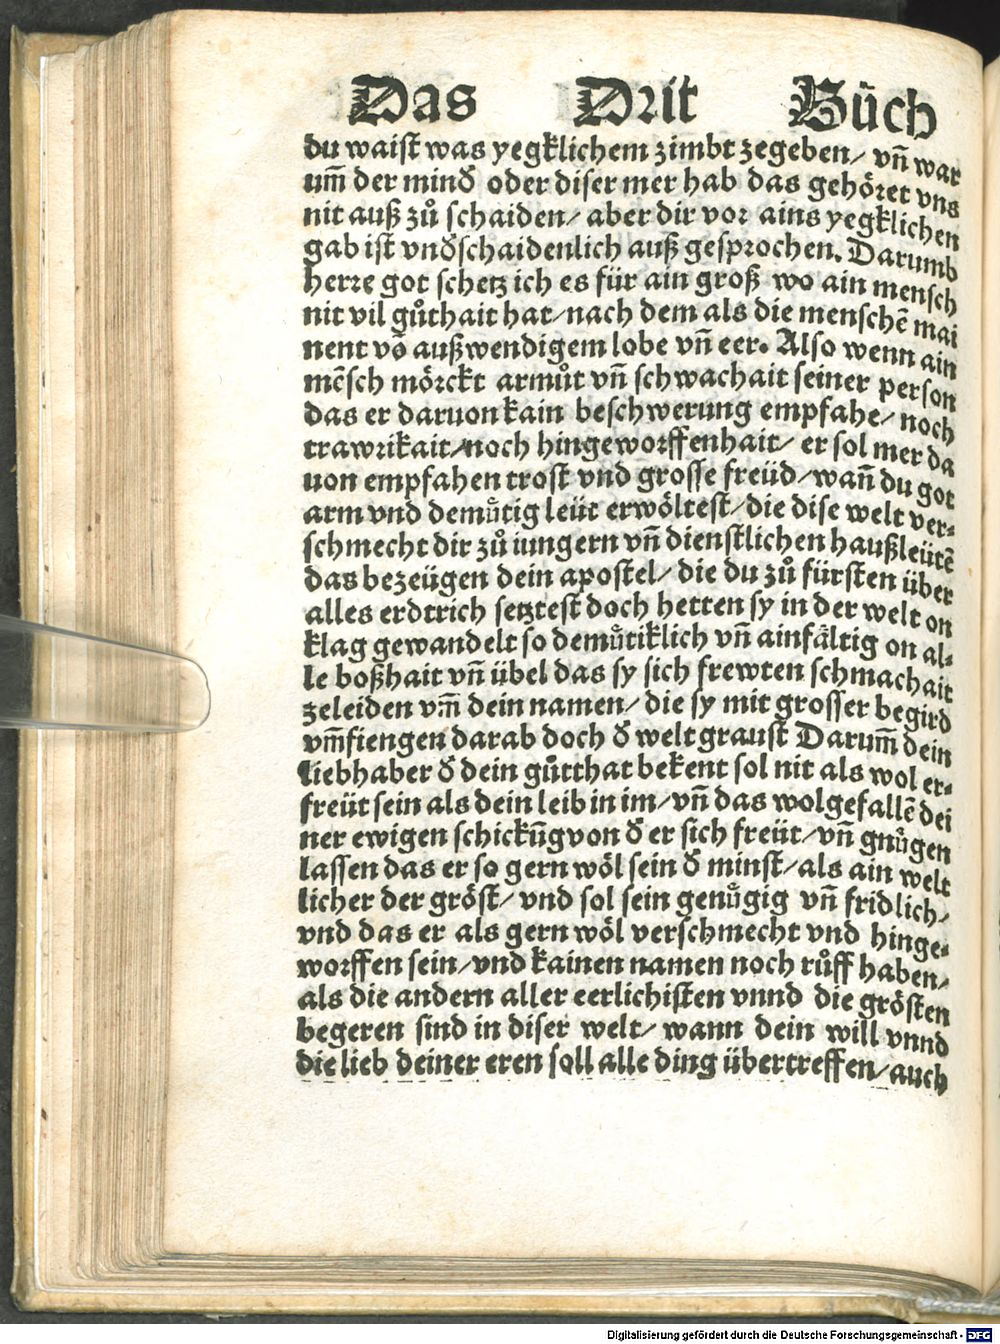 Das Drit Bůch
du waist was yegklichem zimbt zegeben/ vn̄ war
um̄ der mind̛ oder diser mer hab das gehöret vns
nit auß zů schaiden/ aber dir vor ains yegklichen
gab ist vnd̛schaidenlich auß gesprochen. Darumb
herre got schetz ich es für ain groß wo ain mensch
nit vil gůthait hat/ nach dem als die menschē mai
nent vō außwendigem lobe vn̄ eer. Also wenn ain
mēsch mörckt armůt vn̄ schwachait seiner person
das er daruon kain beschwerung empfahe/ noch
trawrikait/ noch hingeworffenhait/ er sol mer da
uon empfahen trost vnd grosse freüd/ wan̄ du got
arm vnd demůtig leüt erwöltest/ die dise welt ver⸗
schmecht dir zů iungern vn̄ dienstlichen haußleütē
das bezeügen dein apostel/ die du zů fürsten über
alles erdtrich setztest doch hetten sy in der welt on
klag gewandelt so demůtiklich vn̄ ainfältig on al⸗
le boßhait vn̄ übel das sy sich frewten schmachait
zeleiden vm̄ dein namen/ die sy mit grosser begird
vm̄fiengen darab doch d̛ welt graust Darum̄ dein
liebhaber d̛ dein gůtthat bekent sol nit als wol er⸗
freüt sein als dein leib in im/ vn̄ das wolgefallē dei
ner ewigen schickūg von d̛ er sich freüt/ vn̄ gnůgen
lassen das er so gern wöl sein d̛ minst/ als ain welt
licher der gröst/ vnd sol sein genůgig vn̄ fridlich/
vnd das er als gern wöl verschmecht vnd hinge⸗
worffen sein/ vnd kainen namen noch růff haben/
als die andern aller eerlichisten vnnd die grösten
begeren sind in diser welt/ wann dein will vnnd
die lieb deiner eren soll alle ding übertreffen/ auch
Digitalisierung gefördert durch die Deutsche Forschungsgemeinschaft - DFG